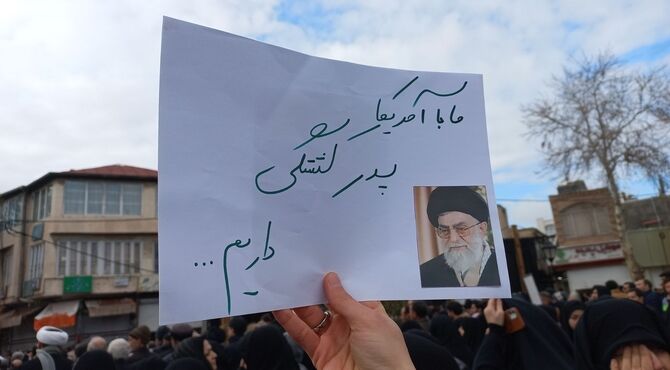 ما با آمریکا
پدر کشتگی
داریم ...